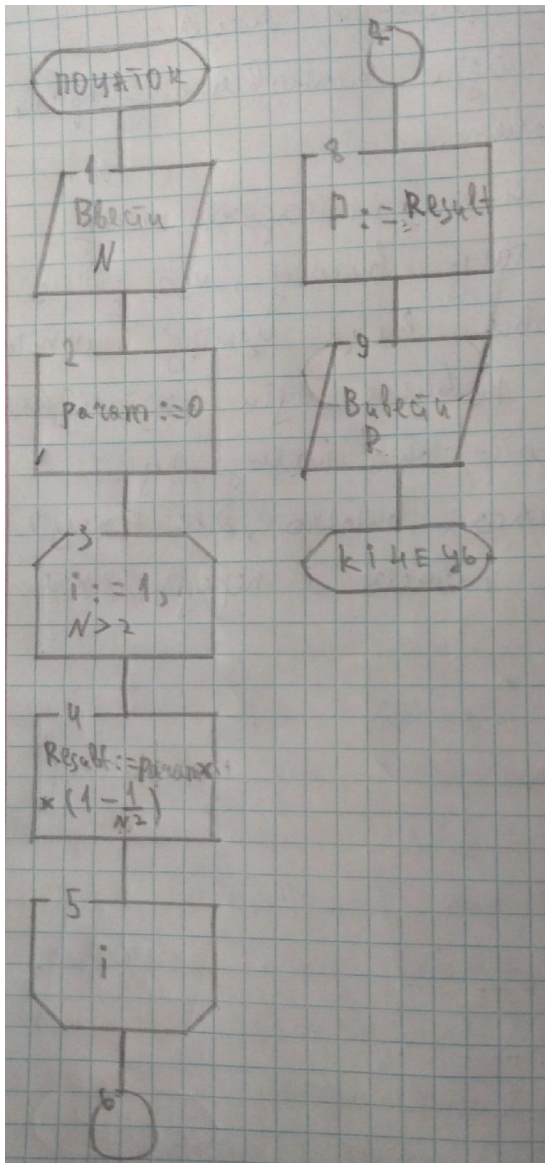 ПОЧАТОК
1
Ввести
N
2
param := 0
3
i := 1,
N > 2
4
Result := param ×
× (1 - 1/N²)
5
i
6
7
8
P := Result
9
Вивести
P
КІНЕЦЬ